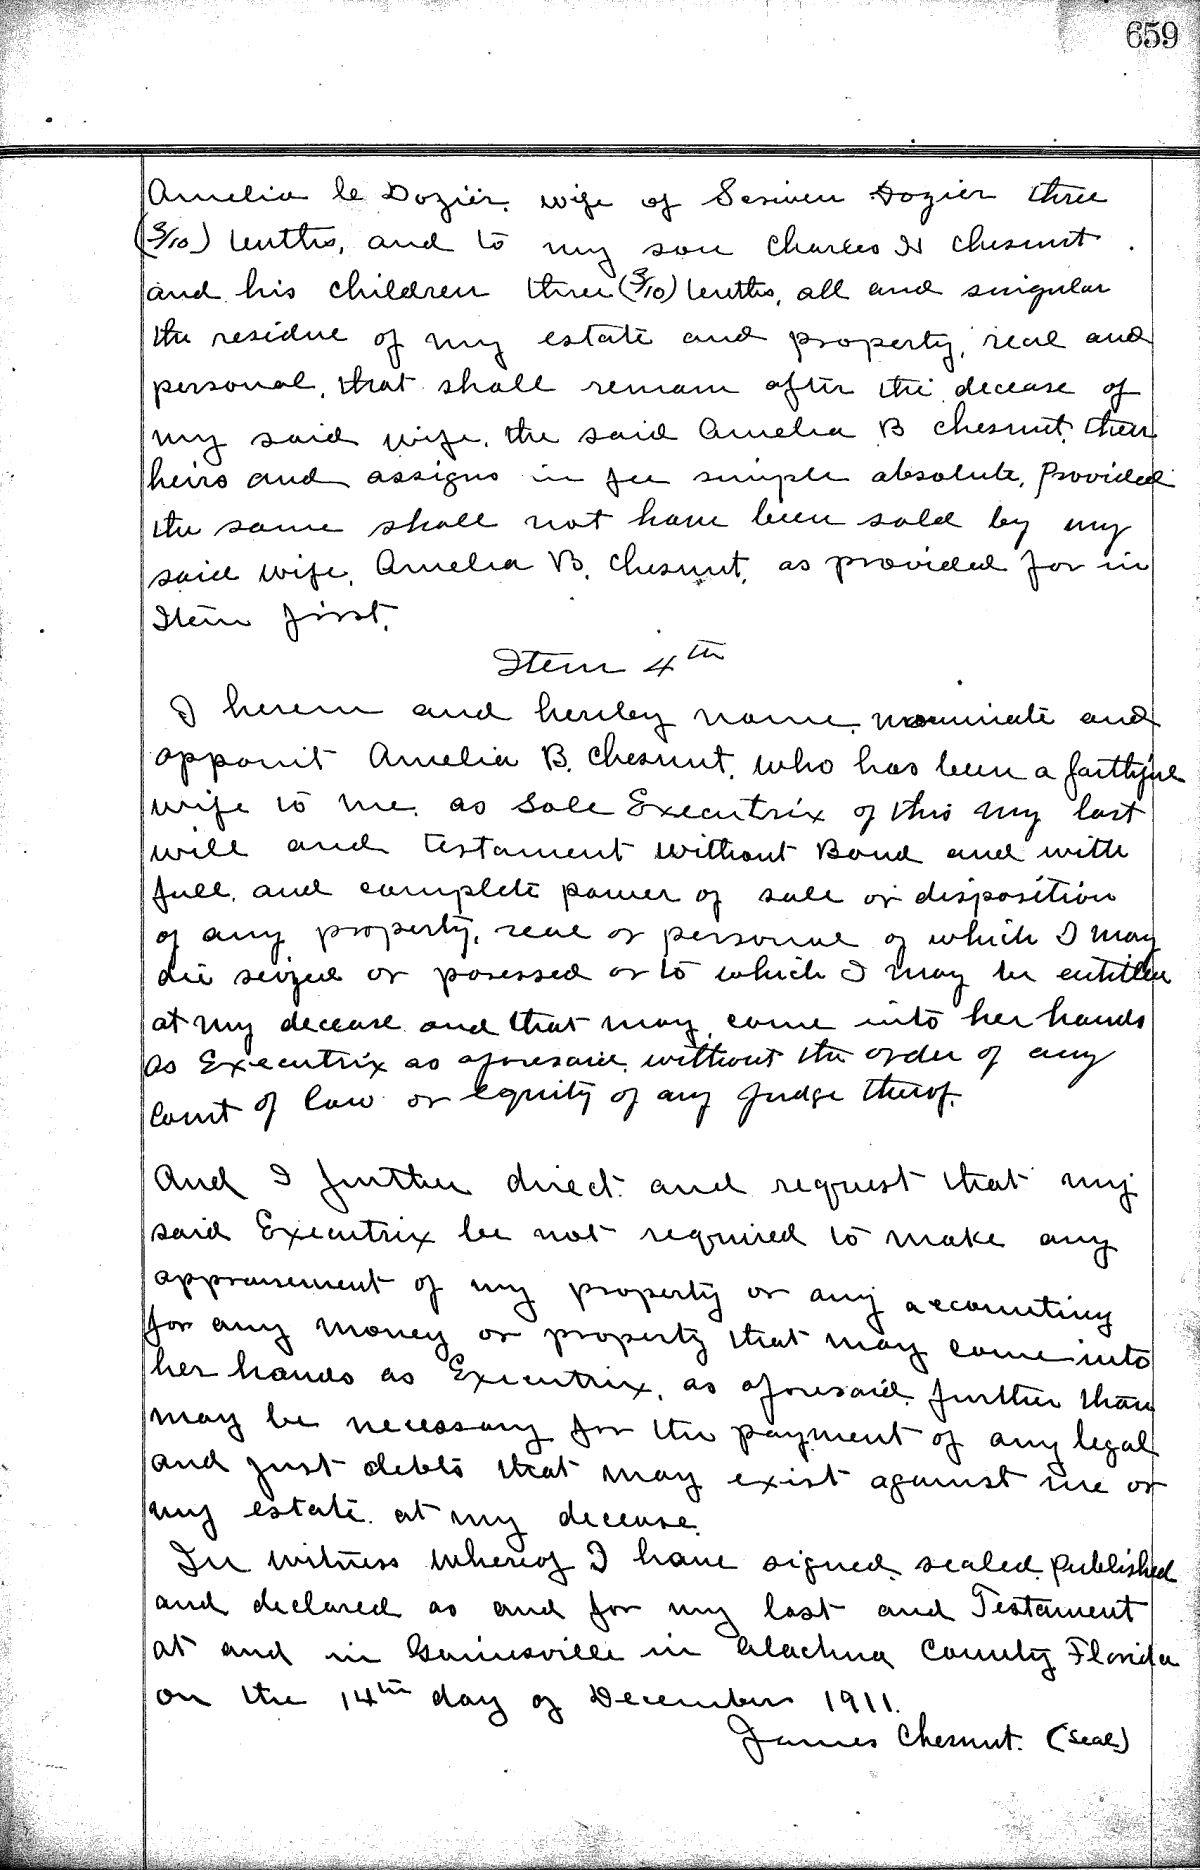 659
Amelia C Dozier, wife of Scriven Dozier three
(3/10) tenths, and to my son Charles H Chesnut
and his children three (3/10) tenths, all and singular
the residue of my estate and property, real and
personal, that shall remain after the decease of
my said wife, the said Amelia B Chesnut, their
heirs and assigns in fee simple absolute, Provided
the same shall not have been sold by my
said wife, Amelia B. Chesnut, as provided for in
Item first.
Item 4th
I herein and hereby name, nominate and
appoint Amelia B. Chesnut, who has been a faithful
wife to me, as Sole Executrix of this my last
will and testament without Bond and with
full, and complete power of sale or disposition
of any property, real or personal of which I may
die seized or posessed or to which I may be entitled
at my decease and that may come into her hands
as Executrix as aforesaid, without the order of any
Court of law or equity of any Judge therof.
And I further direct and request that my
said Executrix be not required to make any
appraisement of my property or any accounting
for any money or property that may come into
her hands as Executrix, as aforesaid, further than
may be necessary for the payment of any legal
and just debts that may exist against me or
my estate at my decease.
In witness whereof I have signed, sealed, published
and declared as and for my last and Testament
at and in Gainesville in Alachua County Florida
on the 14th day of December 1911.
James Chesnut. (Seal)